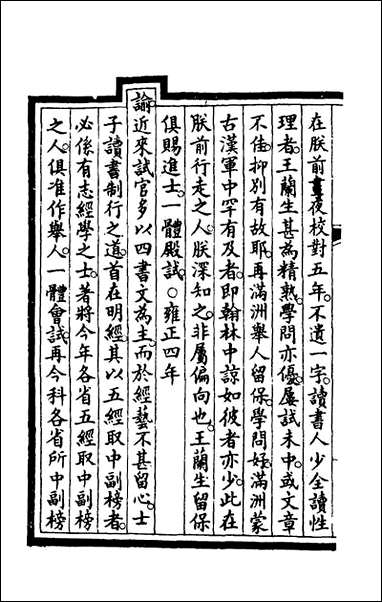 在朕前晝夜校對五年不遺一字讀書人少全讀性
理者王蘭生甚為精熟學問亦優屢試未中或文章
不佳抑別有故耶再滿洲舉人留保學問好滿洲蒙
古漢軍中罕有及者即翰林中諒如彼者亦少此在
朕前行走之人朕深知之非屬偏向也王蘭生留保
俱賜進士一體殿試○雍正四年
諭近來試官多以四書文為主而於經藝不甚留心士
子讀書制行之道首在明經其以五經取中副榜者
必係有志經學之士著將今年各省五經取中副榜
之人俱准作舉人一體會試再今科各省所中副榜